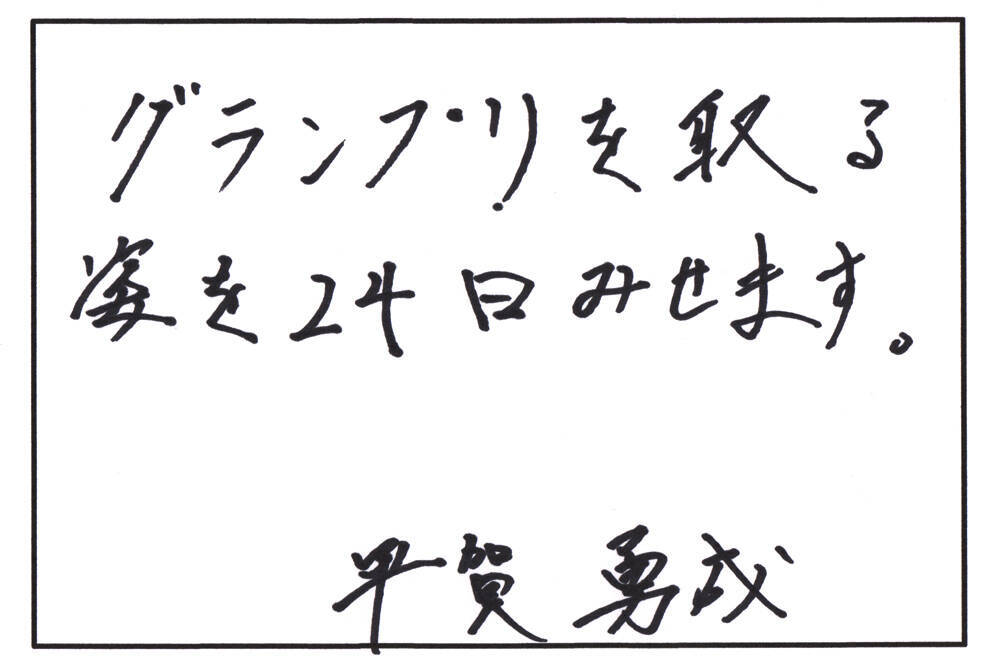 グランプリを取る
姿を24日みせます。
平賀 勇成